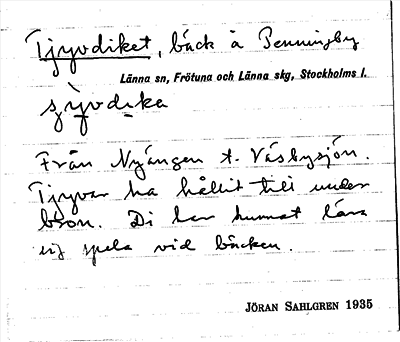 Tjyvdiket, bäck å Penningby
Länna sn, Frötuna och Länna skg, Stockholms l.
Från Nyängen t. Väsbysjön.
Tjyvar ha hållit till under
bron. Di har kunnat lära
sig spela vid bäcken.
JÖRAN SAHLGREN 1935